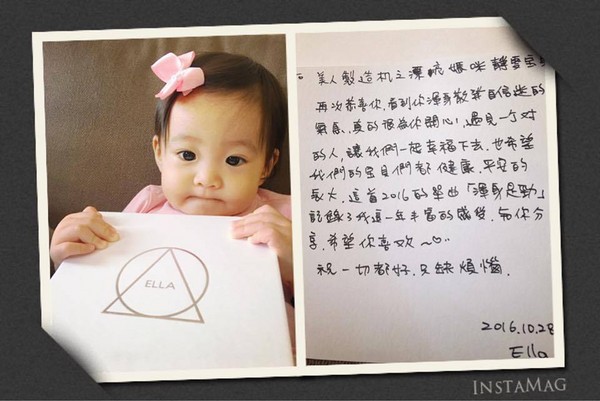 ELLA
美人製造机之漂流媽咪 靜雯宝
再次恭喜你, 看到你渾身散發自信迷的
氣息, 真的很為你開心, 遇見一个对
的人, 讓我們一起幸福下去, 也希望
我們的宝貝們都健康、平安的
長大, 這首2016的單曲「渾身是勁」
記錄了我這一年丰富的感覺, 和你分
享, 希望你喜欢~
祝一切都好, 只缺煩惱.
2016.10.28
Ella
INSTAMAG